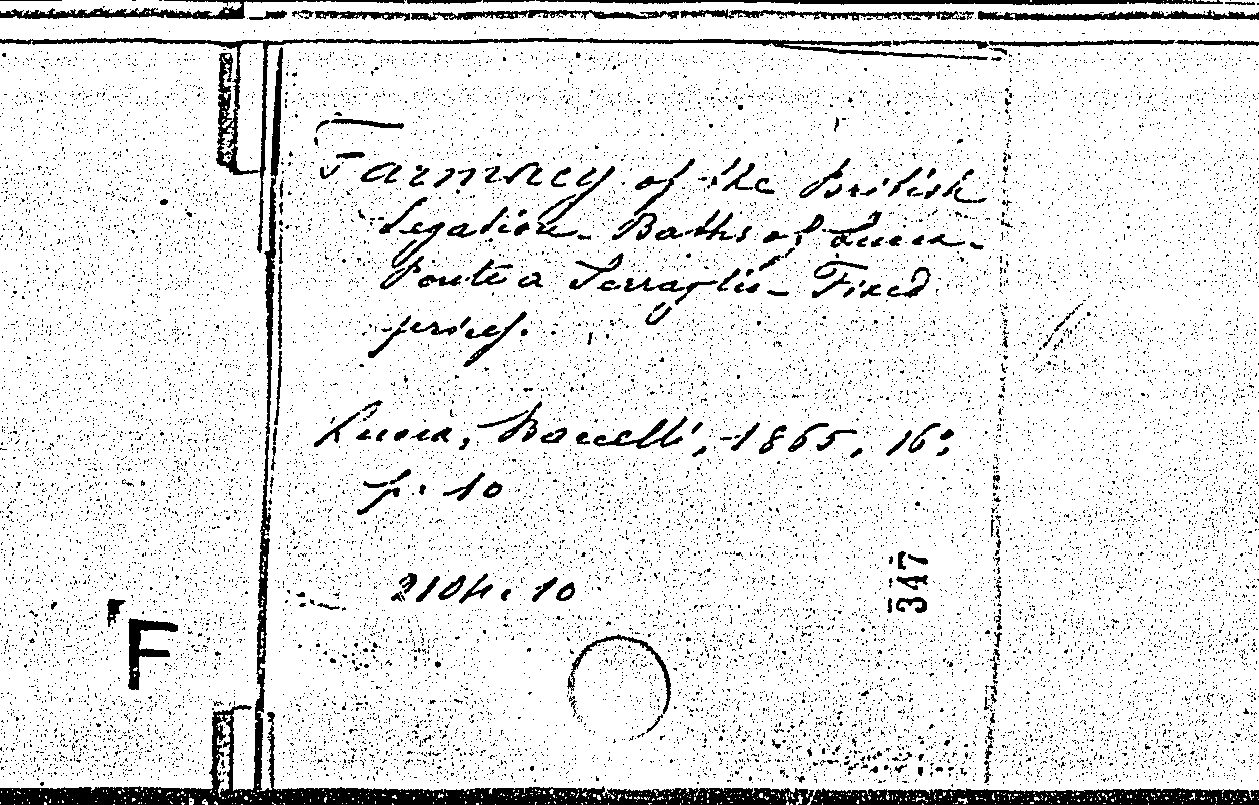 Farmacy of the British
Legation. Baths of Lucca.
Ponte a Serraglio. Fixed
prices.
Lucca, Baccelli, 1865, 16°,
p. 10
2104. 10
347
F